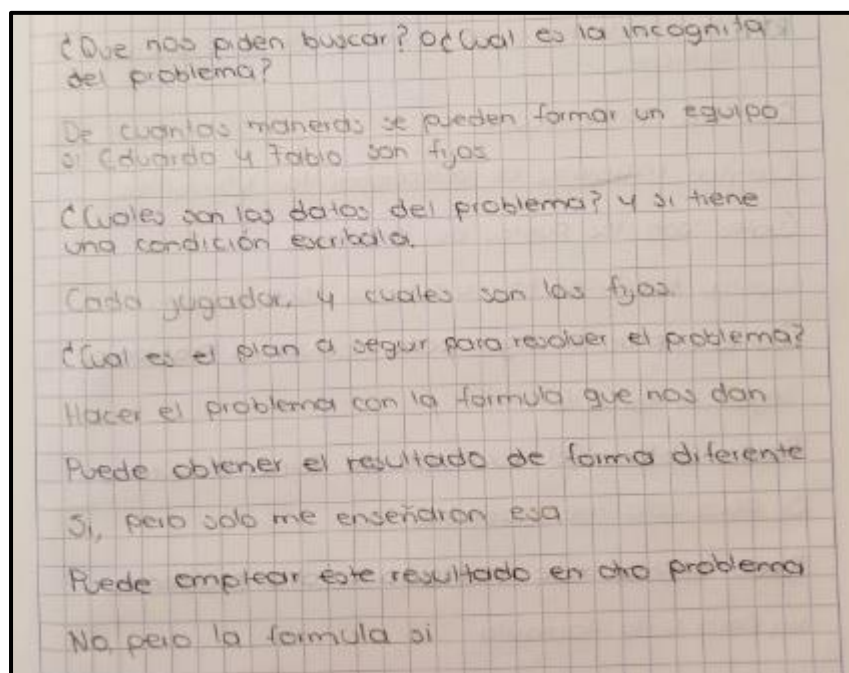 ¿Que nos piden buscar? O¿Cual es la incognita
del problema?
De cuantas maneras se pueden formar un equipo
si Eduardo y Fabio son fijos
¿Cuales son los datos del problema? y si tiene
una condición escribala.
Cada jugador, y cuales son los fijos.
¿Cual es el plan a seguir para resolver el problema?
Hacer el problema con la formula que nos dan
Puede obtener el resultado de forma diferente
Si, pero solo me enseñaron esa
Puede emplear este resultado en otro problema
No pero la formula si